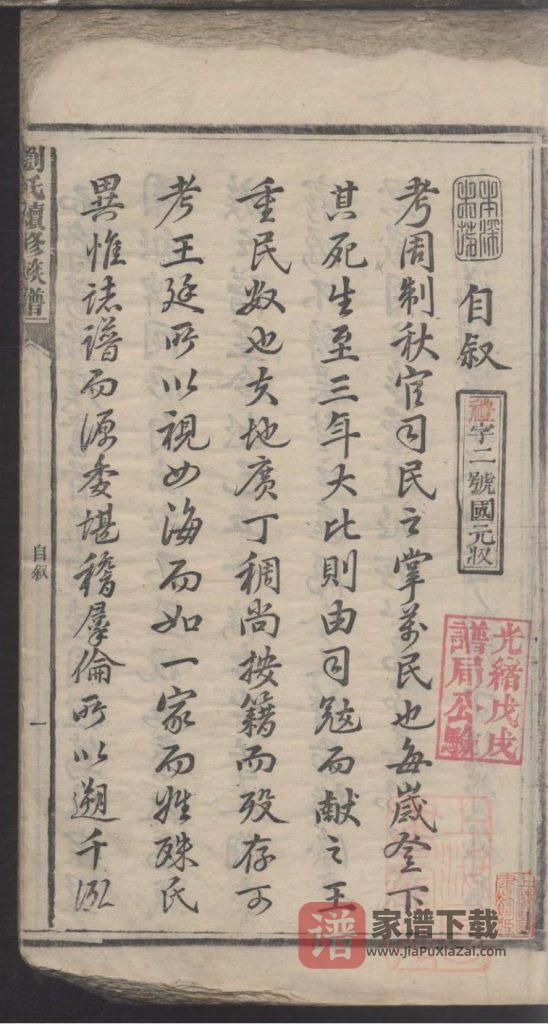 自叙
禮字二號國元收
光緒戊戌
譜局公驗
考周制秋官司民之掌萬民也每歲登下
其死生至三年大比則由司寇而獻之王
重民数也夫地廣丁稠尚按籍而殁存可
考王廷所以視四海而如一家而姓殊氏
異惟誌譜而源委堪稽羣倫所以遡千派
劉氏續修族譜
自叙
一
谱
家谱下载
www.jiaPuXiaZai.com